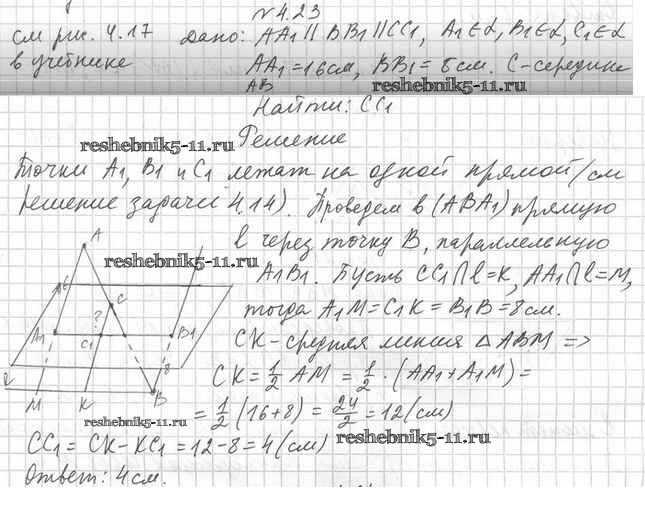 №4.23
см рис. 4.17
в учебнике
Дано: AA₁ || BB₁ || CC₁, A₁∈α, B₁∈α, C₁∈α
AA₁ = 16см, BB₁ = 8см. C-середине
AB
reshebnik5-11.ru
Найти: CC₁
reshebnik5-11.ru
Решение
Точки A₁, B₁ и C₁ лежат на одной прямой /см
решение задачи 4.14). Проведем в (ABA₁) прямую
l через точку B, параллельную
reshebnik5-11.ru
A₁B₁. Пусть CC₁∩l=K, AA₁∩l=M,
тогда A₁M=C₁K=B₁B=8см.
CK-средняя линия △ABM =>
CK=1/2 AM = 1/2 · (AA₁+A₁M)=
= 1/2 (16+8) = 24/2 = 12(см)
A
16
C
?
A₁
C₁
B₁
8
l
M
K
B
reshebnik5-11.ru
CC₁ = CK-KC₁ = 12-8 = 4(см)
reshebnik5-11.ru
Ответ: 4см.